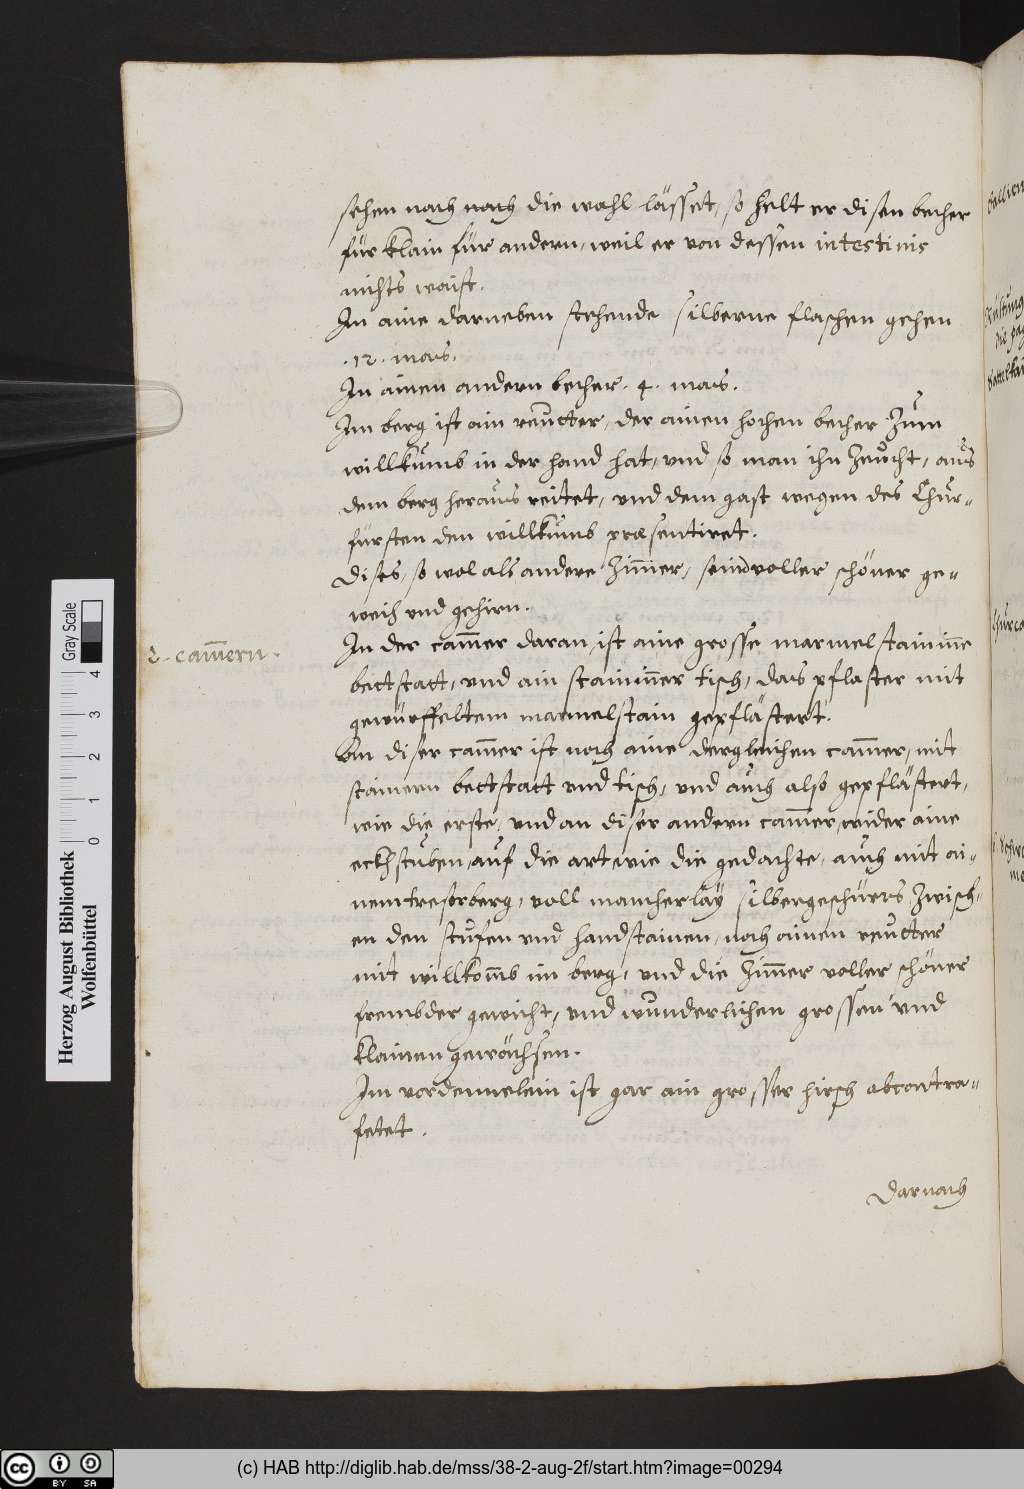 sehen nach noch die wahl lässet, so helt er disen becher
für klain für andern, weil er von dessen intestinis
nichts waist.
In aine darneben stehende silberne flaschen gehen
.12. mas.
In ainen andern becher. 4. mas.
Im berg ist ain reütter, der ainen hochen becher zum
willkumb in der hand hat, und so man ihn zeucht, aus
dem berg heraus reitet, und dem gast wegen des Chur-
fürsten den willkumb præsentiret.
Dises, so wol als andere zim̅er, seind voller schöner ge-
weih und gehirn.
2. cam̅ern.
In der cam̅er daran, ist aine grosse marmelstainine
bettstatt, und ain stainin̅er tisch, das pflaster mit
gewürffeltem marmelstain gepflästert.
An diser cam̅er ist noch aine dergleichen cam̅er, mit
stainern bettstatt und tisch, und auch also gepflästert,
wie die erste, und an diser andern cam̅er, wider aine
eckhstuben, auf die art wie die gedachte, auch mit ai-
nem tresorberg, voll mancherlay silbergeschürrs zwisch-
en den stufen und handstainen, noch ainen reutter
mit willkom̅b im berg, und die zim̅er voller schöner
frembder gewicht, und wunderlichen grossen und
klainen gewächsen.
Im vordennelein ist gar ain grosser hirsch abcontra-
fetet.
Darnach
Herzog August Bibliothek
Wolfenbüttel
Gray Scale
0 1 2 3 4
(c) HAB http://diglib.hab.de/mss/38-2-aug-2f/start.htm?image=00294
cc BY SA